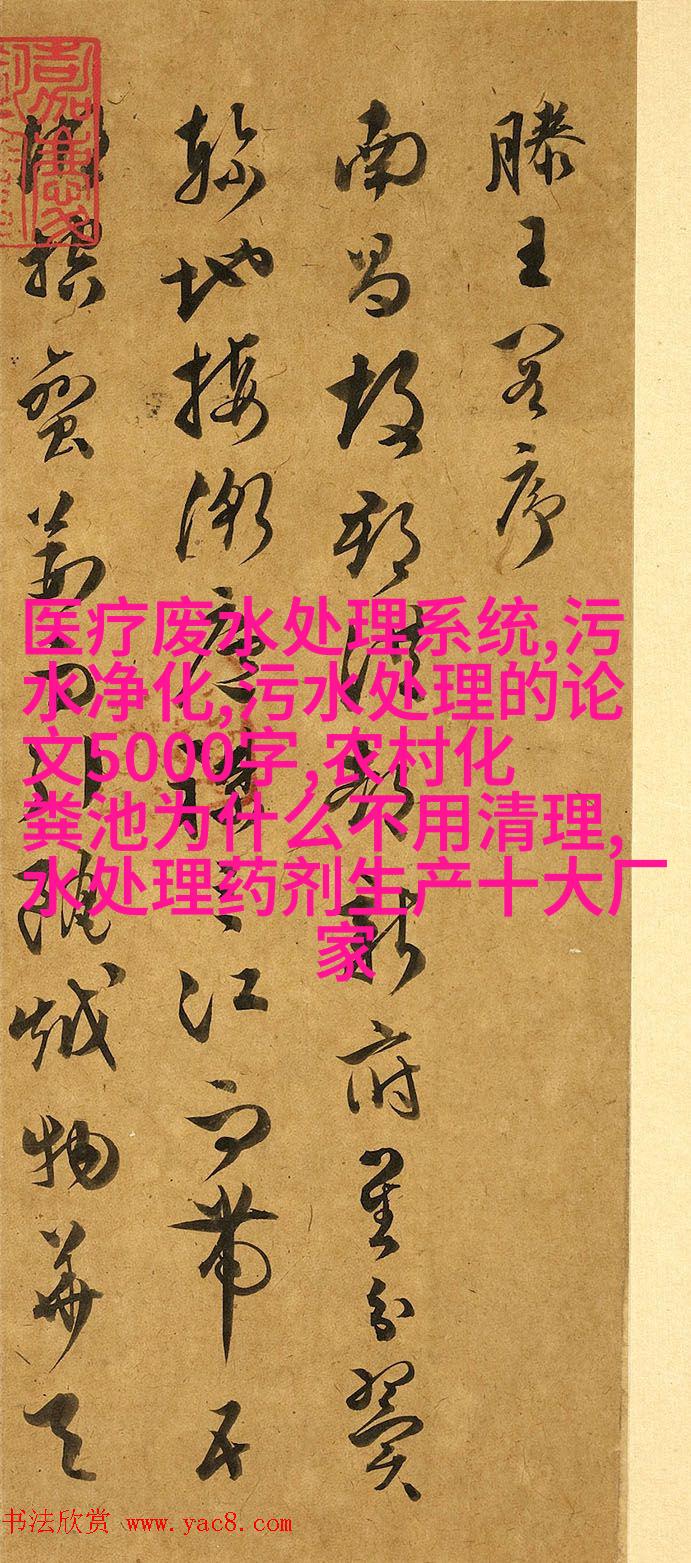 滕王閣序
南昌故郡洪都新府星分翼
軫地接衡廬襟三江而帶五
湖控蛮荊而引甌越物華天
医疗废水处理系统,污
水净化,污水处理的论
文5000字,农村化
粪池为什么不用清理,
水处理药剂生产十大厂
家
书法欣赏 www.yac8.com